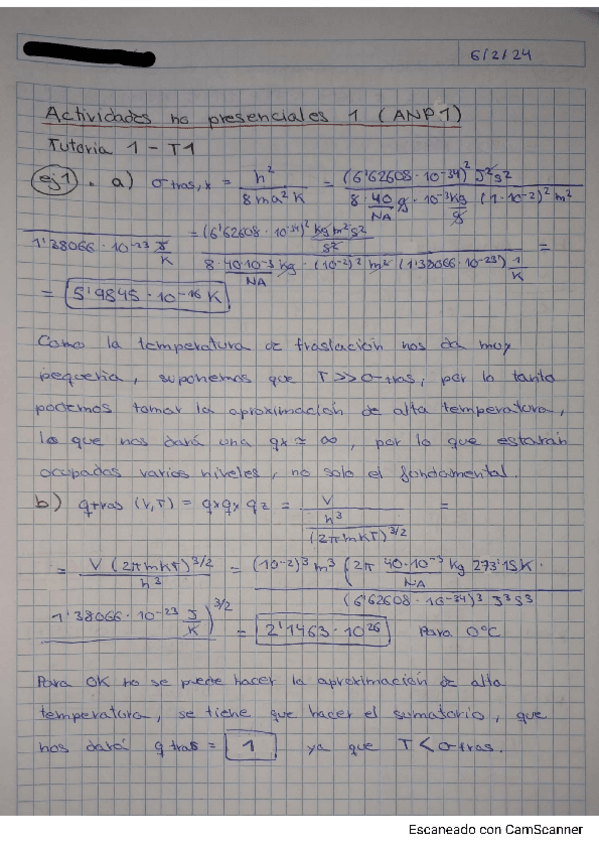 6/2/24
Actividades no presenciales 1 (ANP1)
Tutoria 1 - T1
ej1. a) σtras,x = h² / 8ma²K = (6'62608·10-34)² J²s² / 8·40/NA g·10-3 Kg/g (1·10-2)² m²
1'38066·10-23 J/K = (6'62608·10-34)² Kg m² s²/s² / 8·40·10-3/NA Kg·(10-2)² m² (1'38066·10-23) 1/K =
= 5'9845·10-16 K
Como la temperatura de traslación nos da muy
pequeña, suponemos que T>>σtras, por lo tanto
podemos tomar la aproximación de alta temperatura,
lo que nos dará una qx ≃ ∞, por lo que estarán
ocupados varios niveles, no solo el fundamental.
b) qtras (V,T) = qx qy qz = V / h³/(2πmKT)3/2 =
= V (2πmKT)3/2 / h³ = (10-2)³ m³ (2π 40·10-3/NA Kg 273'15K· / (6'62608·10-34)³ J³s³
1'38066·10-23 J/K)3/2 = 2'1463·10²⁶ Para 0ºC
Para 0K no se puede hacer la aproximación de alta
temperatura, se tiene que hacer el sumatorio, que
nos dará qtras = 1 ya que T<σtras.
Escaneado con CamScanner